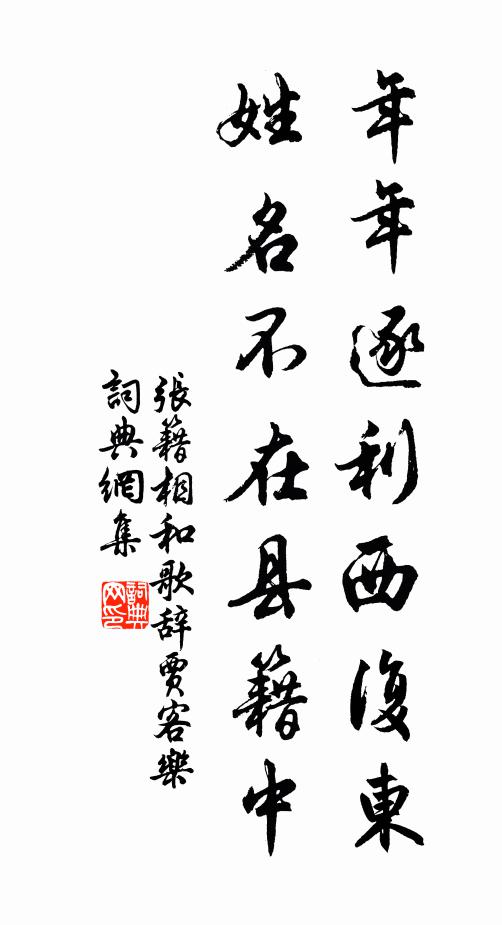 年年逐利西復東
姓名不在县籍中
張籍相和歌辞賈客樂
詞典網集
詞典网印